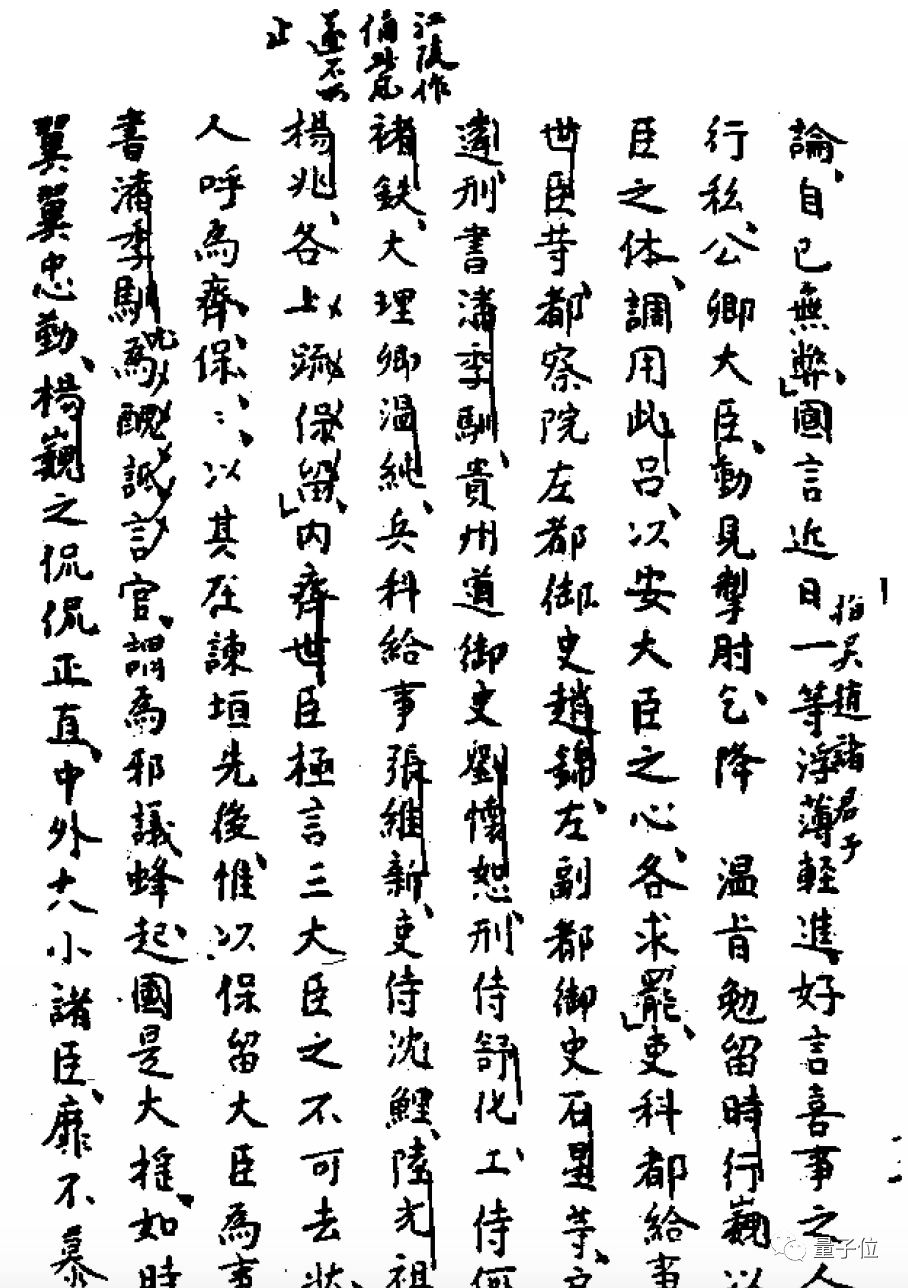 江陵作
俑
遂不
止
論自已無弊國言近日一等浮薄輕進好言喜事之人
指吳趙諸君子
行私公卿大臣動見掣肘乞降 温旨勉留時行巍以
臣之体調用此呂以安大臣之心各求罷吏科都給事
世臣等都察院左都御史趙錦左副都御史石星等
遠刑書潘季馴貴州道御史劉懷恕刑侍舒化工侍何
褚鈇大理卿温純兵科給事張維新吏侍沈鯉陸光祖
楊兆各上疏保留内齊世臣極言三大臣之不可去
人呼為齊保々以其在諫垣先後惟以保留大臣為事
書潘季馴為醜詆言官謂為邪議蜂起國是大摇如時
翼翼忠勤楊巍之侃侃正直中外大小諸臣靡不慕
量子位